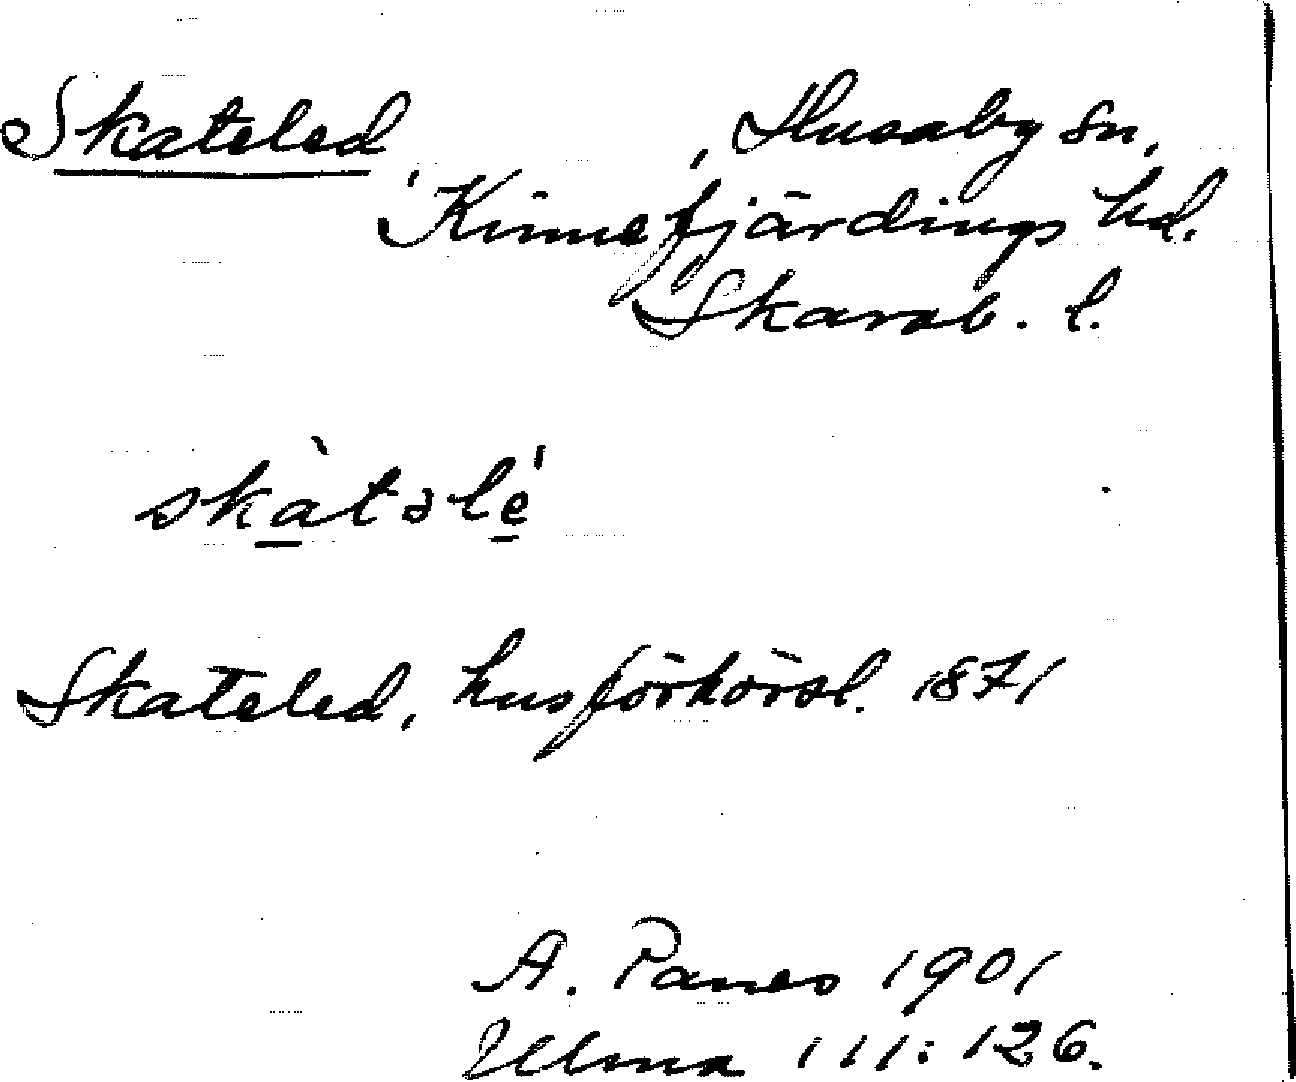 Skateled, Husaby sn,
Kinnefjärdings hd.
Skarab. l.
skàtəlé
Skateled, husförhörsl. 1871
A. Ranes 1901
Ulma 111:126.